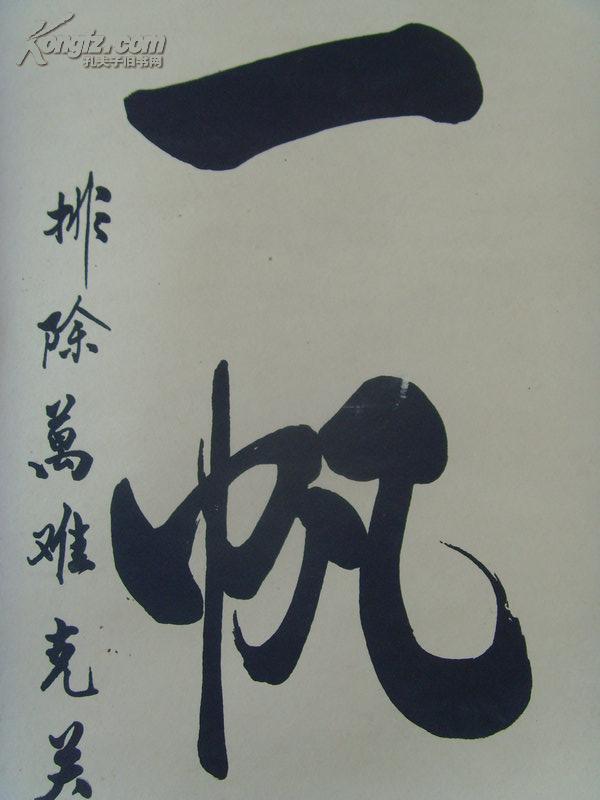 一帆
排除萬难克关
Kongfz.com
孔夫子旧书网